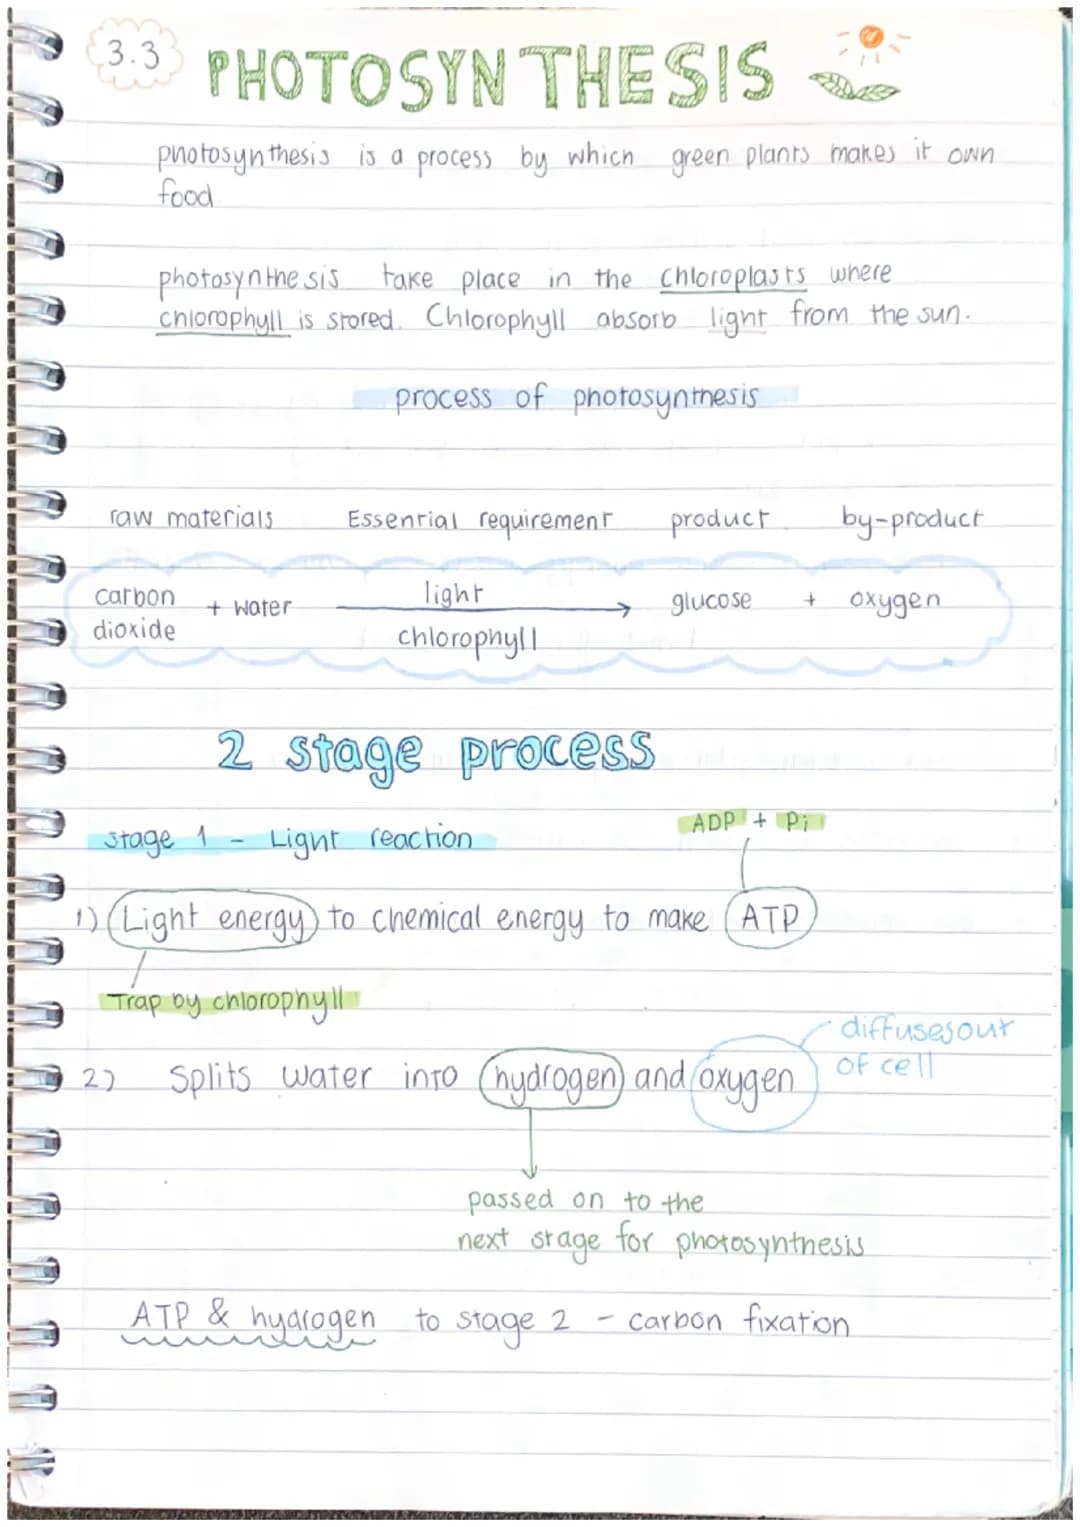 3.3
PHOTOSYNTHESIS
photosynthesis is a process by which green plants makes it own
food
photosynthesis take place in the chloroplasts where
chlorophyll is stored. Chlorophyll absorb light from the sun.
process of photosynthesis
raw materials Essential requirement product by-product
carbon dioxide + water light chlorophyll glucose + oxygen
2 stage process
stage 1 - Light reaction
ADP + Pi
1) Light energy to chemical energy to make ATP
Trap by chlorophyll
diffuses out
of cell
2) Splits water into hydrogen and oxygen
passed on to the
next stage for photosynthesis
ATP & hydrogen to stage 2 - carbon fixation